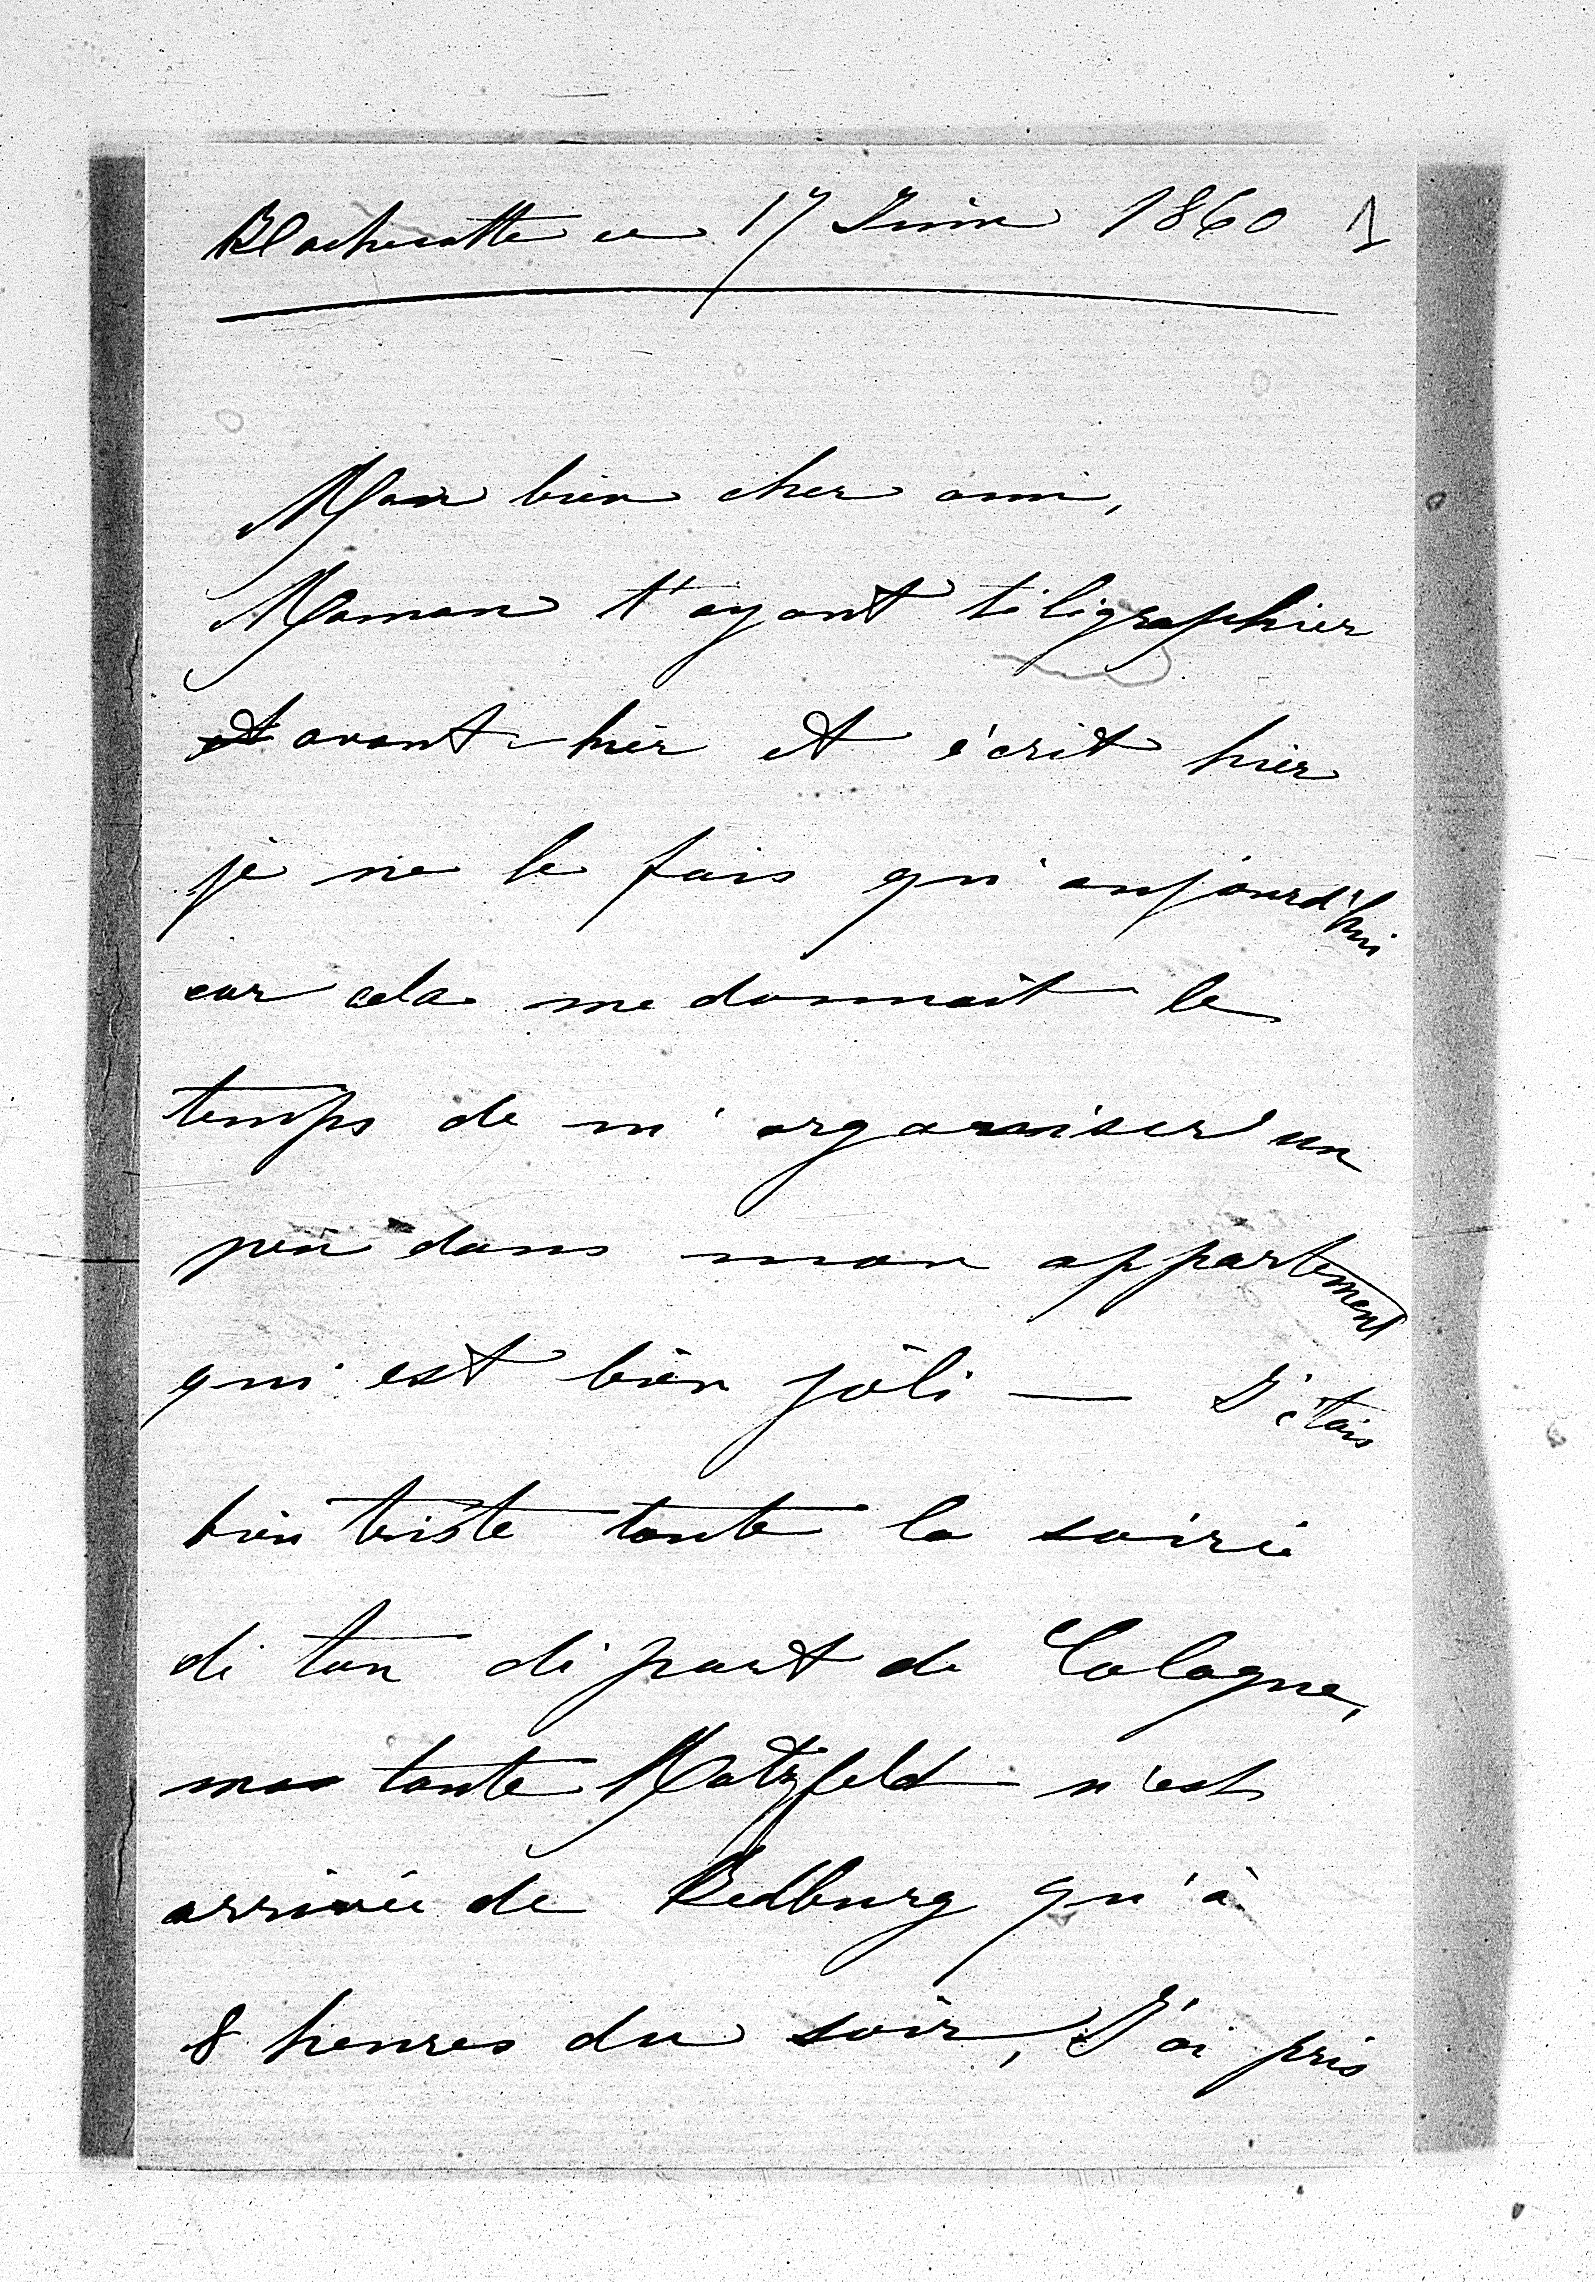 Rochecotte ce 17 Juin 1860 1
Mon bien cher ami,
Maman t'ayant téligraphier
et avant-hier et écrit hier
je ne le fais qu'aujourd'hui
car cela me donnait le
temps de m'organiser un
peu dans mon appartement
qui est bien joli — J'étais
bien triste toute la soirée
de ton départ de Cologne,
ma tante Hatzfeld n'est
arrivée de Bedburg qu'à
8 heures du soir, J'ai pris